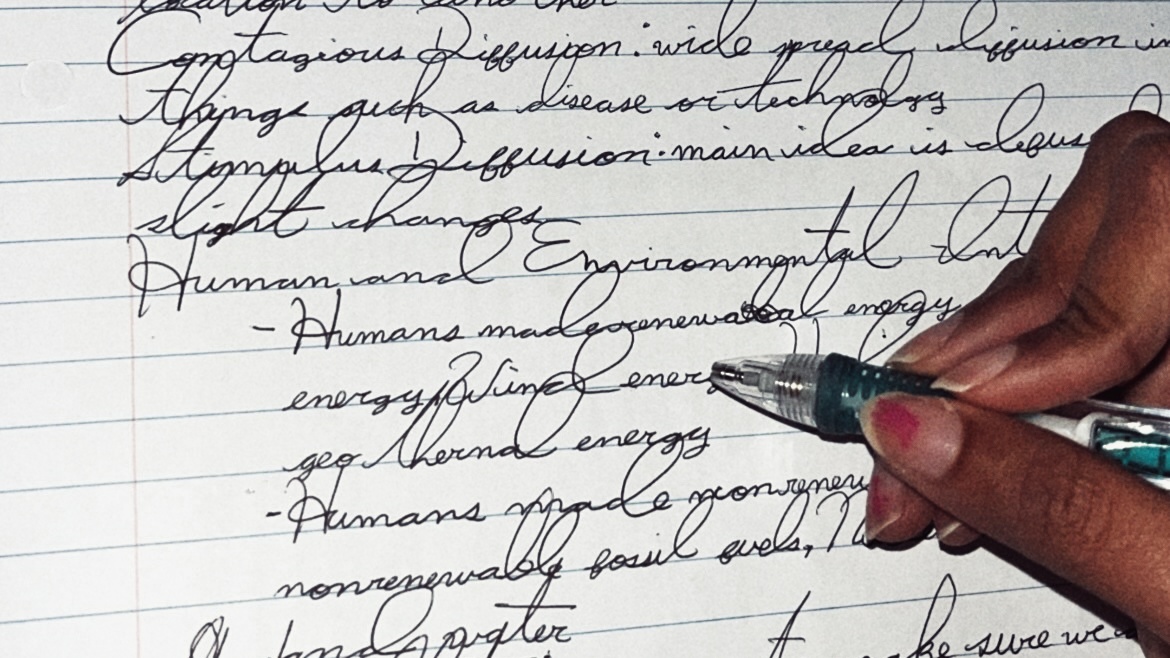 Contagious Diffusion: wide spread diffusion
things such as disease or technology
Stimulus Diffusion: main idea is
slight changes
Human and Environmental Int
- Humans made energy
energy, Wind energ
geo thernal energy
- Humans made nonrenew
nonrenewable fossil fuels,
make sure we